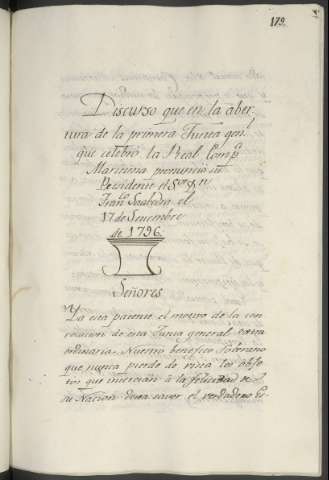 179.
Discurso que en la aber-
tura de la primera Junta genl.
que celebro la Real Compa.
Maritima pronunció su
Presidente el Sor. Dn.
Franco. Saabedra el
17 de Setiembre
de 1796
Señores
Ya esta patente el motivo de la con-
vocacion de esta Junta general extra
ordinaria. Nuestro benefico Soberano
que nunca pierde de vista los obje-
tos que interesan à la felicidad de
su Nacion desea saver el verdadero es-